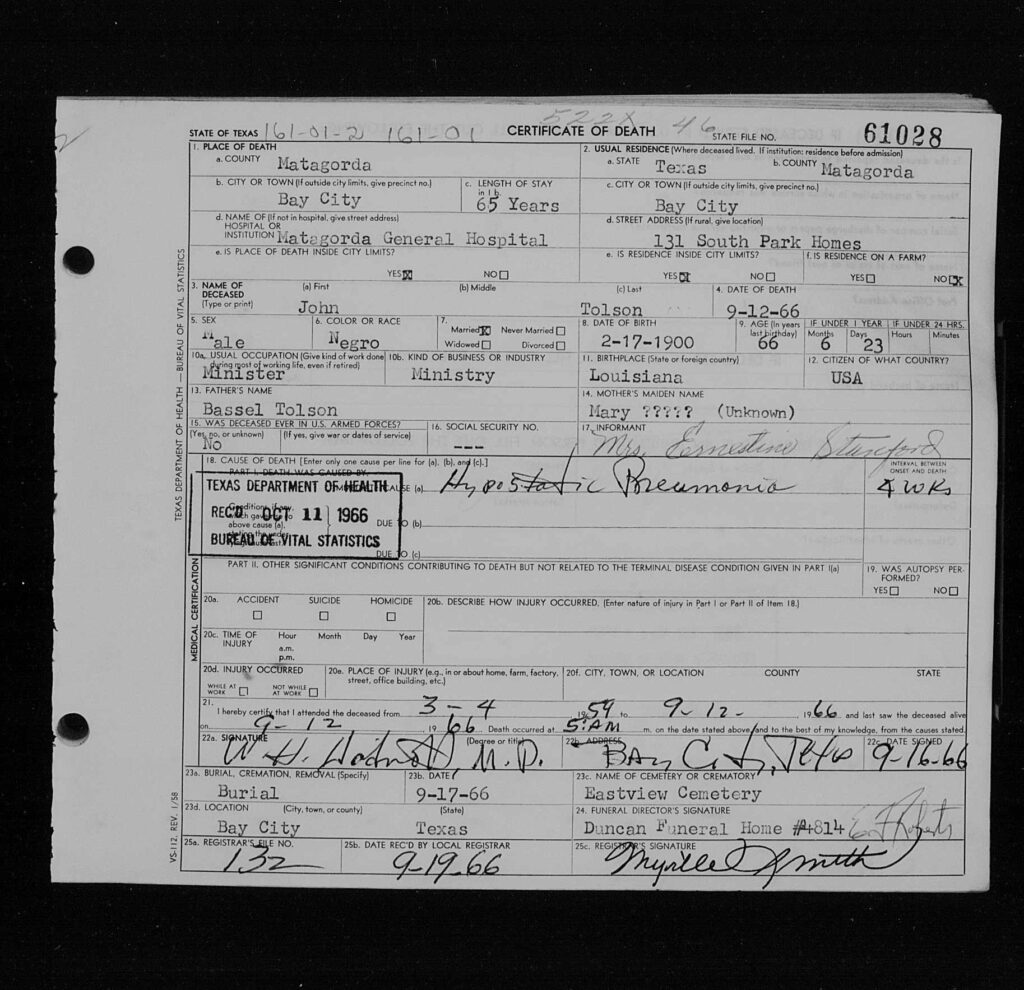 522X 46
STATE OF TEXAS 161-01-2 161-01 CERTIFICATE OF DEATH STATE FILE NO. 61028
1. PLACE OF DEATH
a. COUNTY Matagorda
2. USUAL RESIDENCE (Where deceased lived. If institution: residence before admission)
a. STATE Texas b. COUNTY Matagorda
b. CITY OR TOWN (If outside city limits, give precinct no.) Bay City
c. LENGTH OF STAY in 1 b. 65 Years
c. CITY OR TOWN (If outside city limits, give precinct no.) Bay City
d. NAME OF (If not in hospital, give street address)
HOSPITAL OR
INSTITUTION Matagorda General Hospital
d. STREET ADDRESS (If rural, give location)
131 South Park Homes
e. IS PLACE OF DEATH INSIDE CITY LIMITS?
YES☒ NO☐
e. IS RESIDENCE INSIDE CITY LIMITS?
YES☒ NO☐
f. IS RESIDENCE ON A FARM?
YES☐ NO☒
3. NAME OF DECEASED (Type or print)
(a) First (b) Middle (c) Last
John Tolson
4. DATE OF DEATH
9-12-66
5. SEX
Male
6. COLOR OR RACE
Negro
7. Married☒ Never Married☐
Widowed☐ Divorced☐
8. DATE OF BIRTH
2-17-1900
9. AGE (In years last birthday)
66
IF UNDER 1 YEAR
Months Days
6 23
IF UNDER 24 HRS.
Hours Minutes
10a. USUAL OCCUPATION (Give kind of work done during most of working life, even if retired)
Minister
10b. KIND OF BUSINESS OR INDUSTRY
Ministry
11. BIRTHPLACE (State or foreign country)
Louisiana
12. CITIZEN OF WHAT COUNTRY?
USA
13. FATHER'S NAME
Bassel Tolson
14. MOTHER'S MAIDEN NAME
Mary ????? (Unknown)
15. WAS DECEASED EVER IN U.S. ARMED FORCES?
(Yes, no, or unknown) (If yes, give war or dates of service)
No
16. SOCIAL SECURITY NO.
---
17. INFORMANT
Mrs. Ernestine
18. CAUSE OF DEATH [Enter only one cause per line for (a), (b), and (c).]
PART I. DEATH WAS CAUSED BY:
IMMEDIATE CAUSE (a) Hypostatic Pneumonia
INTERVAL BETWEEN ONSET AND DEATH
4 WKs
TEXAS DEPARTMENT OF HEALTH
REC'D OCT 11 1966
BUREAU OF VITAL STATISTICS
DUE TO (b)
DUE TO (c)
PART II. OTHER SIGNIFICANT CONDITIONS CONTRIBUTING TO DEATH BUT NOT RELATED TO THE TERMINAL DISEASE CONDITION GIVEN IN PART I(a)
19. WAS AUTOPSY PERFORMED?
YES☐ NO☐
20a. ACCIDENT SUICIDE HOMICIDE
☐ ☐ ☐
20b. DESCRIBE HOW INJURY OCCURRED. (Enter nature of injury in Part I or Part II of Item 18.)
20c. TIME OF INJURY
Hour Month Day Year
a.m.
p.m.
20d. INJURY OCCURRED
WHILE AT WORK ☐ NOT WHILE AT WORK ☐
20e. PLACE OF INJURY (e.g., in or about home, farm, factory, street, office building, etc.)
20f. CITY, TOWN, OR LOCATION COUNTY STATE
21. I hereby certify that I attended the deceased from 3-4 1959 to 9-12- 1966 and last saw the deceased alive
on 9-12 1966 Death occurred at 5:AM m. on the date stated above; and to the best of my knowledge, from the causes stated.
22a. SIGNATURE (Degree or title)
W. H. M.D.
22b. ADDRESS
Bay City, Texas
22c. DATE SIGNED
9-16-66
23a. BURIAL, CREMATION, REMOVAL (Specify)
Burial
23b. DATE
9-17-66
23c. NAME OF CEMETERY OR CREMATORY
Eastview Cemetery
23d. LOCATION (City, town, or county) (State)
Bay City Texas
24. FUNERAL DIRECTOR'S SIGNATURE
Duncan Funeral Home #4814 Roberts
25a. REGISTRAR'S FILE NO.
132
25b. DATE REC'D BY LOCAL REGISTRAR
9-19-66
25c. REGISTRAR'S SIGNATURE
Smith
TEXAS DEPARTMENT OF HEALTH — BUREAU OF VITAL STATISTICS
MEDICAL CERTIFICATION
VS-112, REV. 1/58